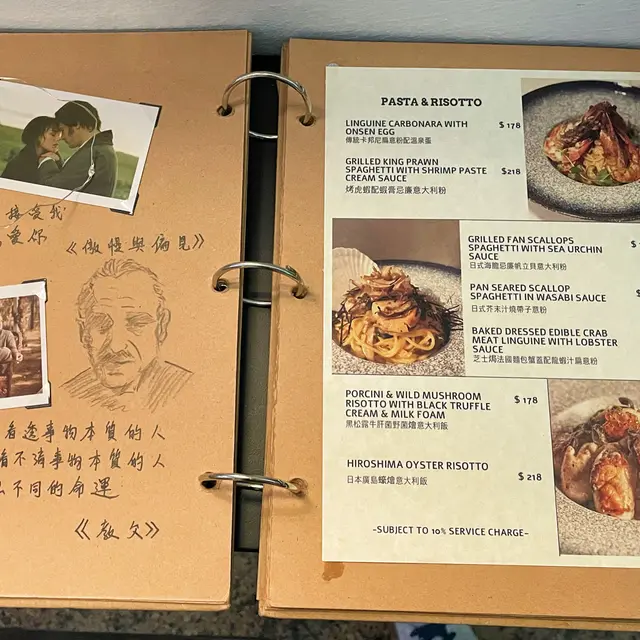 接受我
愛你
《傲慢與偏見》
看透事物本質的人
看不清事物本質的人
不同的命運
《教父》
PASTA & RISOTTO
LINGUINE CARBONARA WITH
ONSEN EGG
$ 178
傳統卡邦尼扁意粉配溫泉蛋
GRILLED KING PRAWN
SPAGHETTI WITH SHRIMP PASTE
CREAM SAUCE
$218
烤虎蝦配蝦膏忌廉意大利粉
GRILLED FAN SCALLOPS
SPAGHETTI WITH SEA URCHIN
SAUCE
$
日式海膽忌廉帆立貝意大利粉
PAN SEARED SCALLOP
SPAGHETTI IN WASABI SAUCE
日式芥末汁燒帶子意粉
BAKED DRESSED EDIBLE CRAB
MEAT LINGUINE WITH LOBSTER
SAUCE
芝士焗法國麵包蟹蓋配龍蝦汁扁意粉
PORCINI & WILD MUSHROOM
RISOTTO WITH BLACK TRUFFLE
CREAM & MILK FOAM
$ 178
黑松露牛肝菌野菌燴意大利飯
HIROSHIMA OYSTER RISOTTO
$ 218
日本廣島蠔燴意大利飯
-SUBJECT TO 10% SERVICE CHARGE-